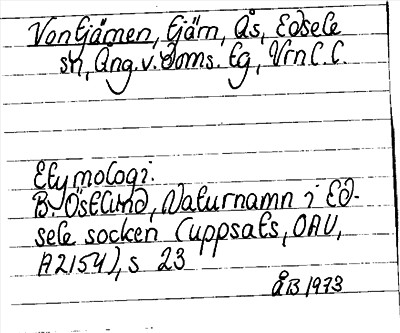 Vontjärnen, tjärn, Ås, Edsele
sn, Ång. v. doms. tg, Vrn l. C.
Etymologi:
B. Östlund, Naturnamn i Ed-
sele socken (uppsats, OAU,
A2154), s 23
ÅB 1973